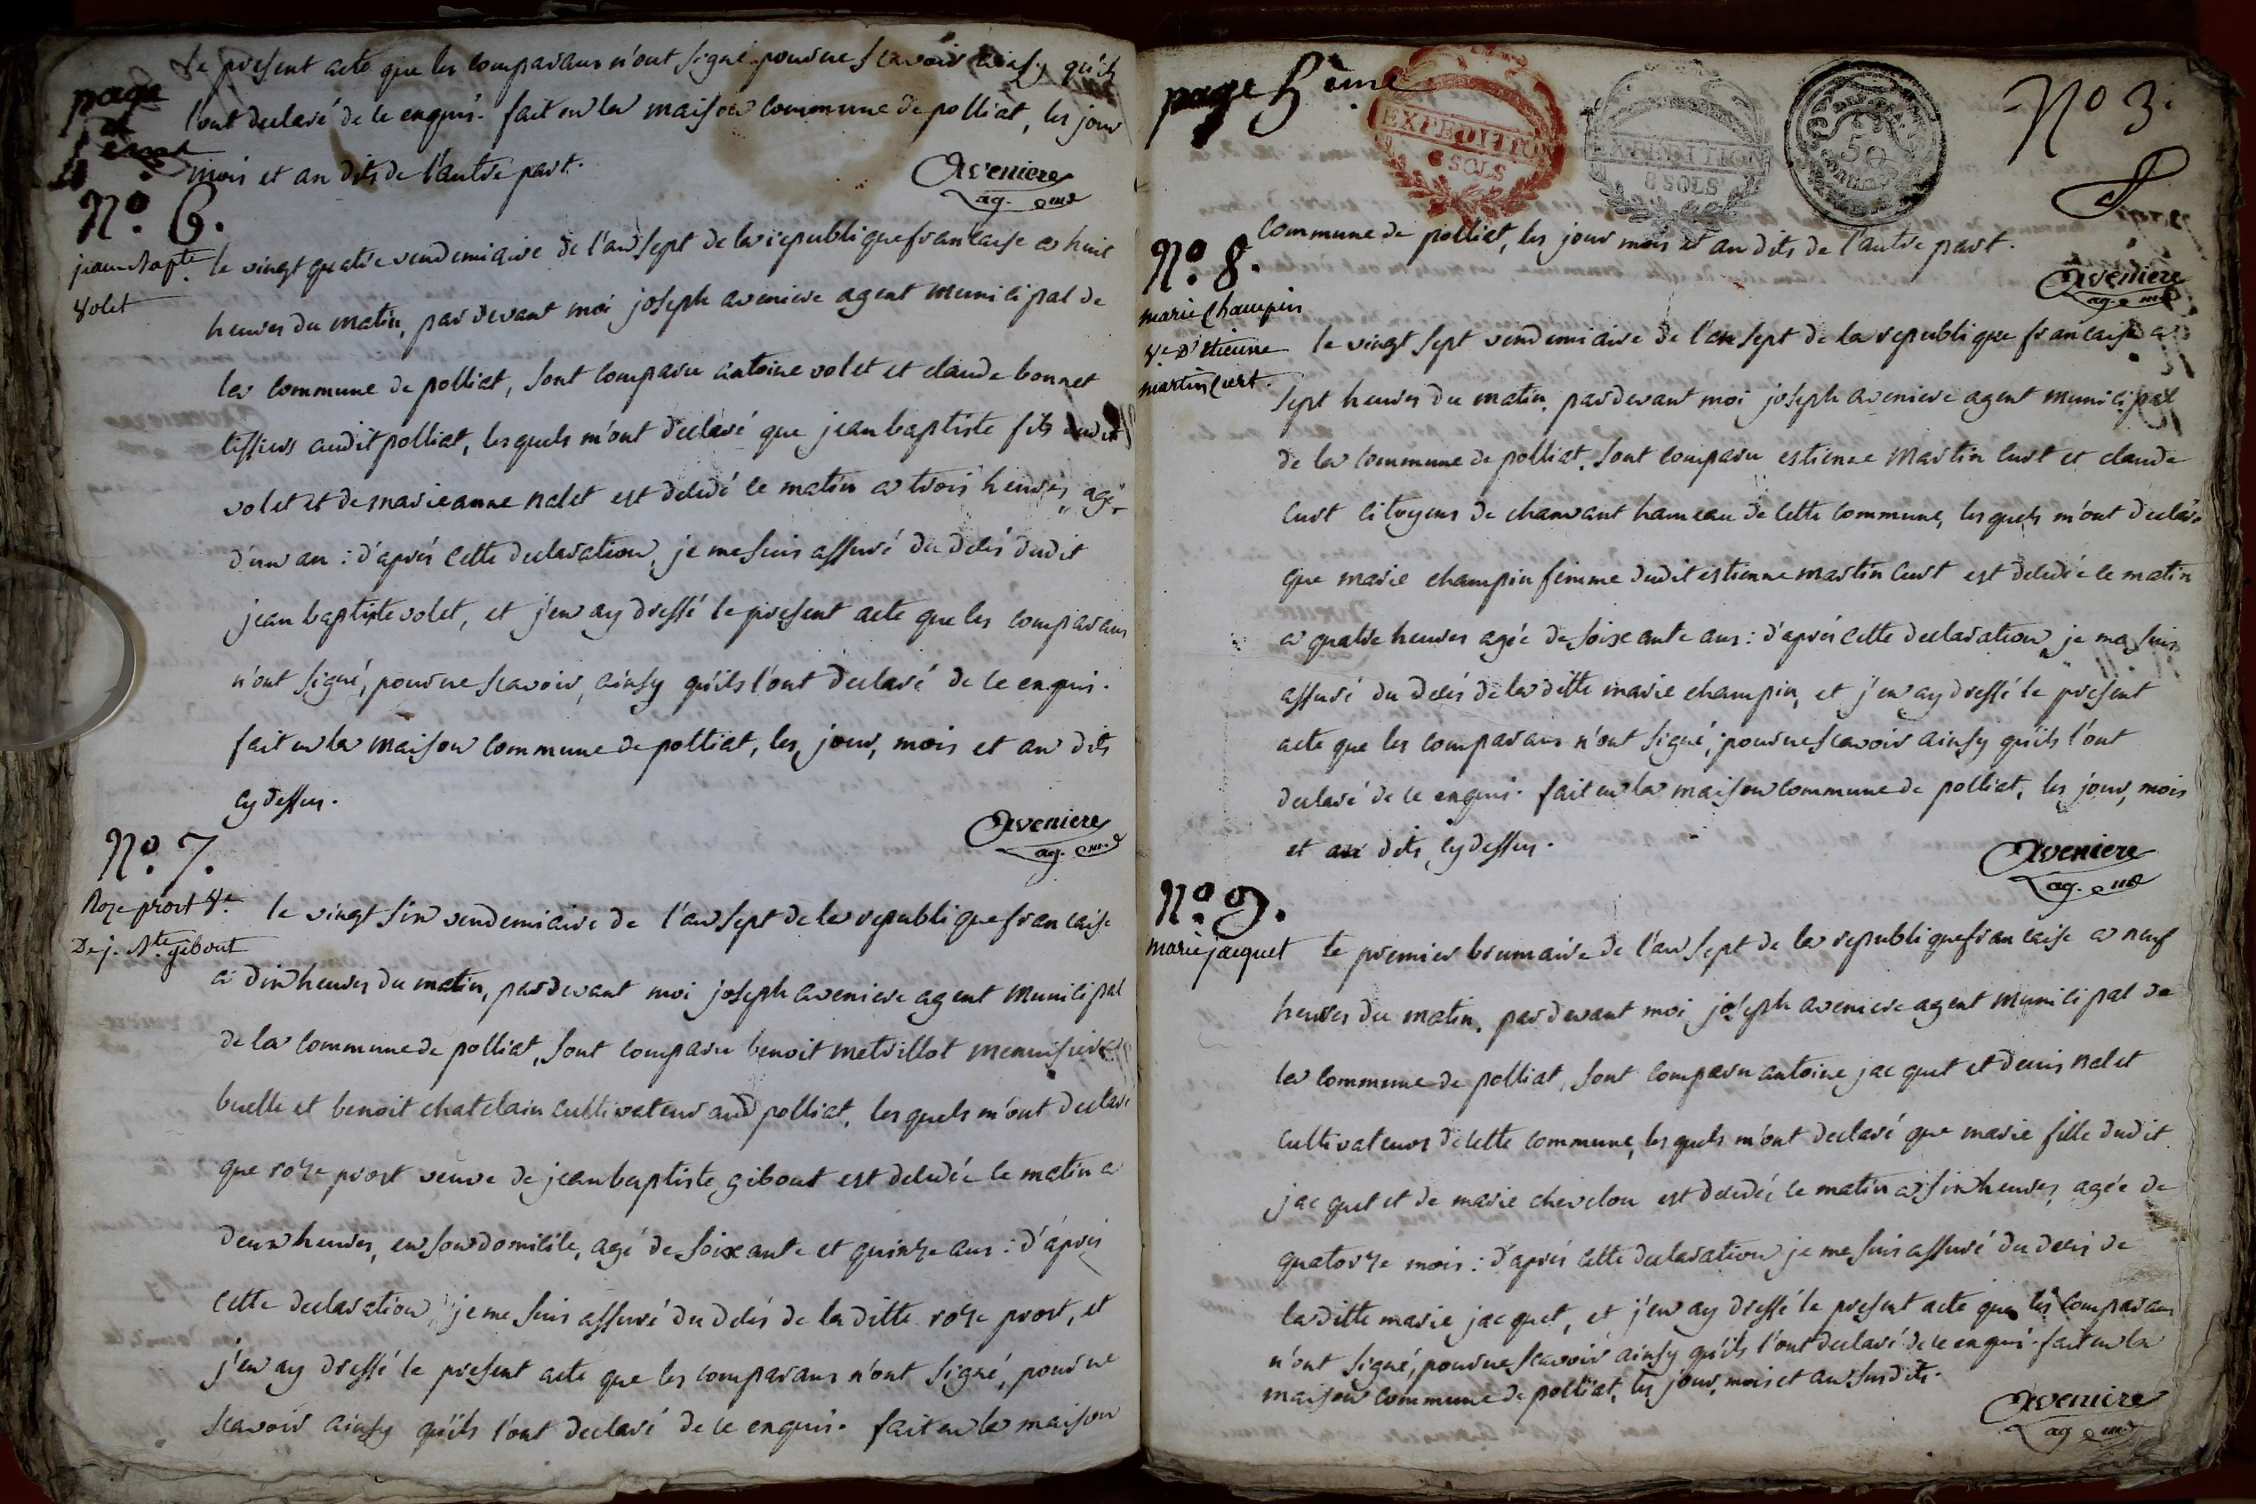 page
4 eme
le present acte que les comparans n'ont signé pour ne scavoir ainsy qu'ils
l'ont declaré de ce enquis. fait en la maison commune de polliat, les jour
mois et an dits de l'autre part.
Aveniere
ag. m.
N.o 6.
jean bapte
volet
le vingt quatre vendemiaire de l'an sept de la republique francaise a huit
heures du matin, pardevant moi joseph aveniere agent municipal de
la commune de polliat, sont comparu antoine volet et claude bonnet
tissiers audit polliat, lesquels m'ont declaré que jean baptiste fils dudit
volet et de marie anne nalet est decedé ce matin a trois heures, agé
d'un an : d'après cette declaration, je me suis assuré du decés dudit
jean baptiste volet, et j'en ay dressé le present acte que les comparans
n'ont signé, pour ne scavoir, ainsy qu'ils l'ont declaré de ce enquis.
fait en la maison commune de polliat, les jour, mois et an dits
cy dessus.
Aveniere
ag. m.
N.o 7.
Roze prost ve.
De j. Bte. gibout
le vingt six vendemiaire de l'an sept de la republique francaise
a dix heures du matin, pardevant moi joseph aveniere agent municipal
de la commune de polliat, sont comparu benoit metrillot menuisier a
buelle et benoit chatelain cultivateur aud polliat, lesquels m'ont declaré
que roze prost veuve de jean baptiste gibout est decedée ce matin a
deux heures, en son domicile, agé de soixante et quinze ans : d'après
cette declaration, je me suis assuré du decés de la ditte roze prost, et
j'en ay dressé le present acte que les comparans n'ont signé, pour ne
scavoir ainsy qu'ils l'ont declaré de ce enquis. fait en la maison
page 5 eme
EXPEDITION
6 SOLS
EXPEDITION
8 SOLS
50
No 3.
commune de polliat, les jour mois et an dits de l'autre part.
Aveniere
ag. m.
N.o 8.
marie Champin
ve D'Etienne
martin Curt.
le vingt sept vendemiaire de l'an sept de la republique francaise a
sept heures du matin, pardevant moi joseph aveniere agent municipal
de la commune de polliat, sont comparu estienne Martin Curt et claude
Curt citoyens de chanvant hameau de cette commune, lesquels m'ont declaré
que marie champin femme dudit estienne martin Curt est decedée ce matin
a quatre heures agée de soixante ans : d'après cette declaration je me suis
assuré du decés de la ditte marie champin, et j'en ay dressé le present
acte que les comparans n'ont signé, pour ne scavoir ainsy qu'ils l'ont
declaré de ce enquis. fait en la maison commune de polliat, les jour, mois
et an dits cy dessus.
Aveniere
ag. m.
N.o 9.
marie jacquet
le premier brumaire de l'an sept de la republique francaise a neuf
heures du matin, pardevant moi joseph aveniere agent municipal de
la commune de polliat, sont comparu antoine jacquet et denis nalet
cultivateurs de cette commune, lesquels m'ont declaré que marie fille dudit
jacquet et de marie chevelou est decedée ce matin a six heures, agée de
quatorze mois : d'après cette declaration je me suis assuré du decés de
la ditte marie jacquet, et j'en ay dressé le present acte que les comparans
n'ont signé, pour ne scavoir ainsy qu'ils l'ont declaré de ce enquis. fait en la
maison commune de polliat, les jour, mois et an susdits.
Aveniere
ag. m.